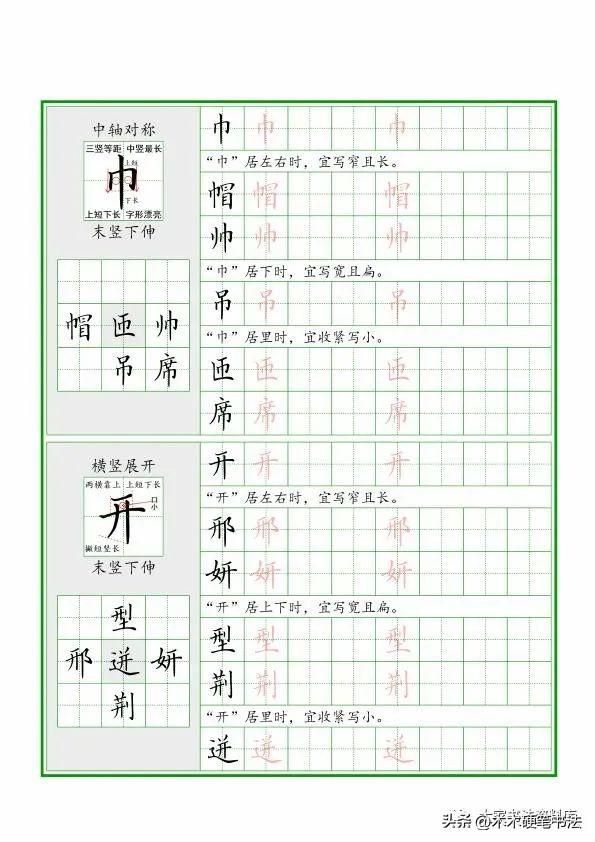 中轴对称
三竖等距 中竖最长
上短
巾
下长
上短下长 字形漂亮
末竖下伸
帽 匝 帅
吊 席
巾 巾 巾
“巾”居左右时，宜写窄且长。
帽 帽 帽
帅 帅 帅
“巾”居下时，宜写宽且扁。
吊 吊 吊
“巾”居里时，宜收紧写小。
匝 匝 匝
席 席 席
横竖展开
两横靠上 上短下长
开
口小
撇短竖长
末竖下伸
型
邢 迸 妍
荆
开 开 开
“开”居左右时，宜写窄且长。
邢 邢 邢
妍 妍 妍
“开”居上下时，宜写宽且扁。
型 型 型
荆 荆 荆
“开”居里时，宜收紧写小。
迸 迸 迸
头条 @木木硬笔书法